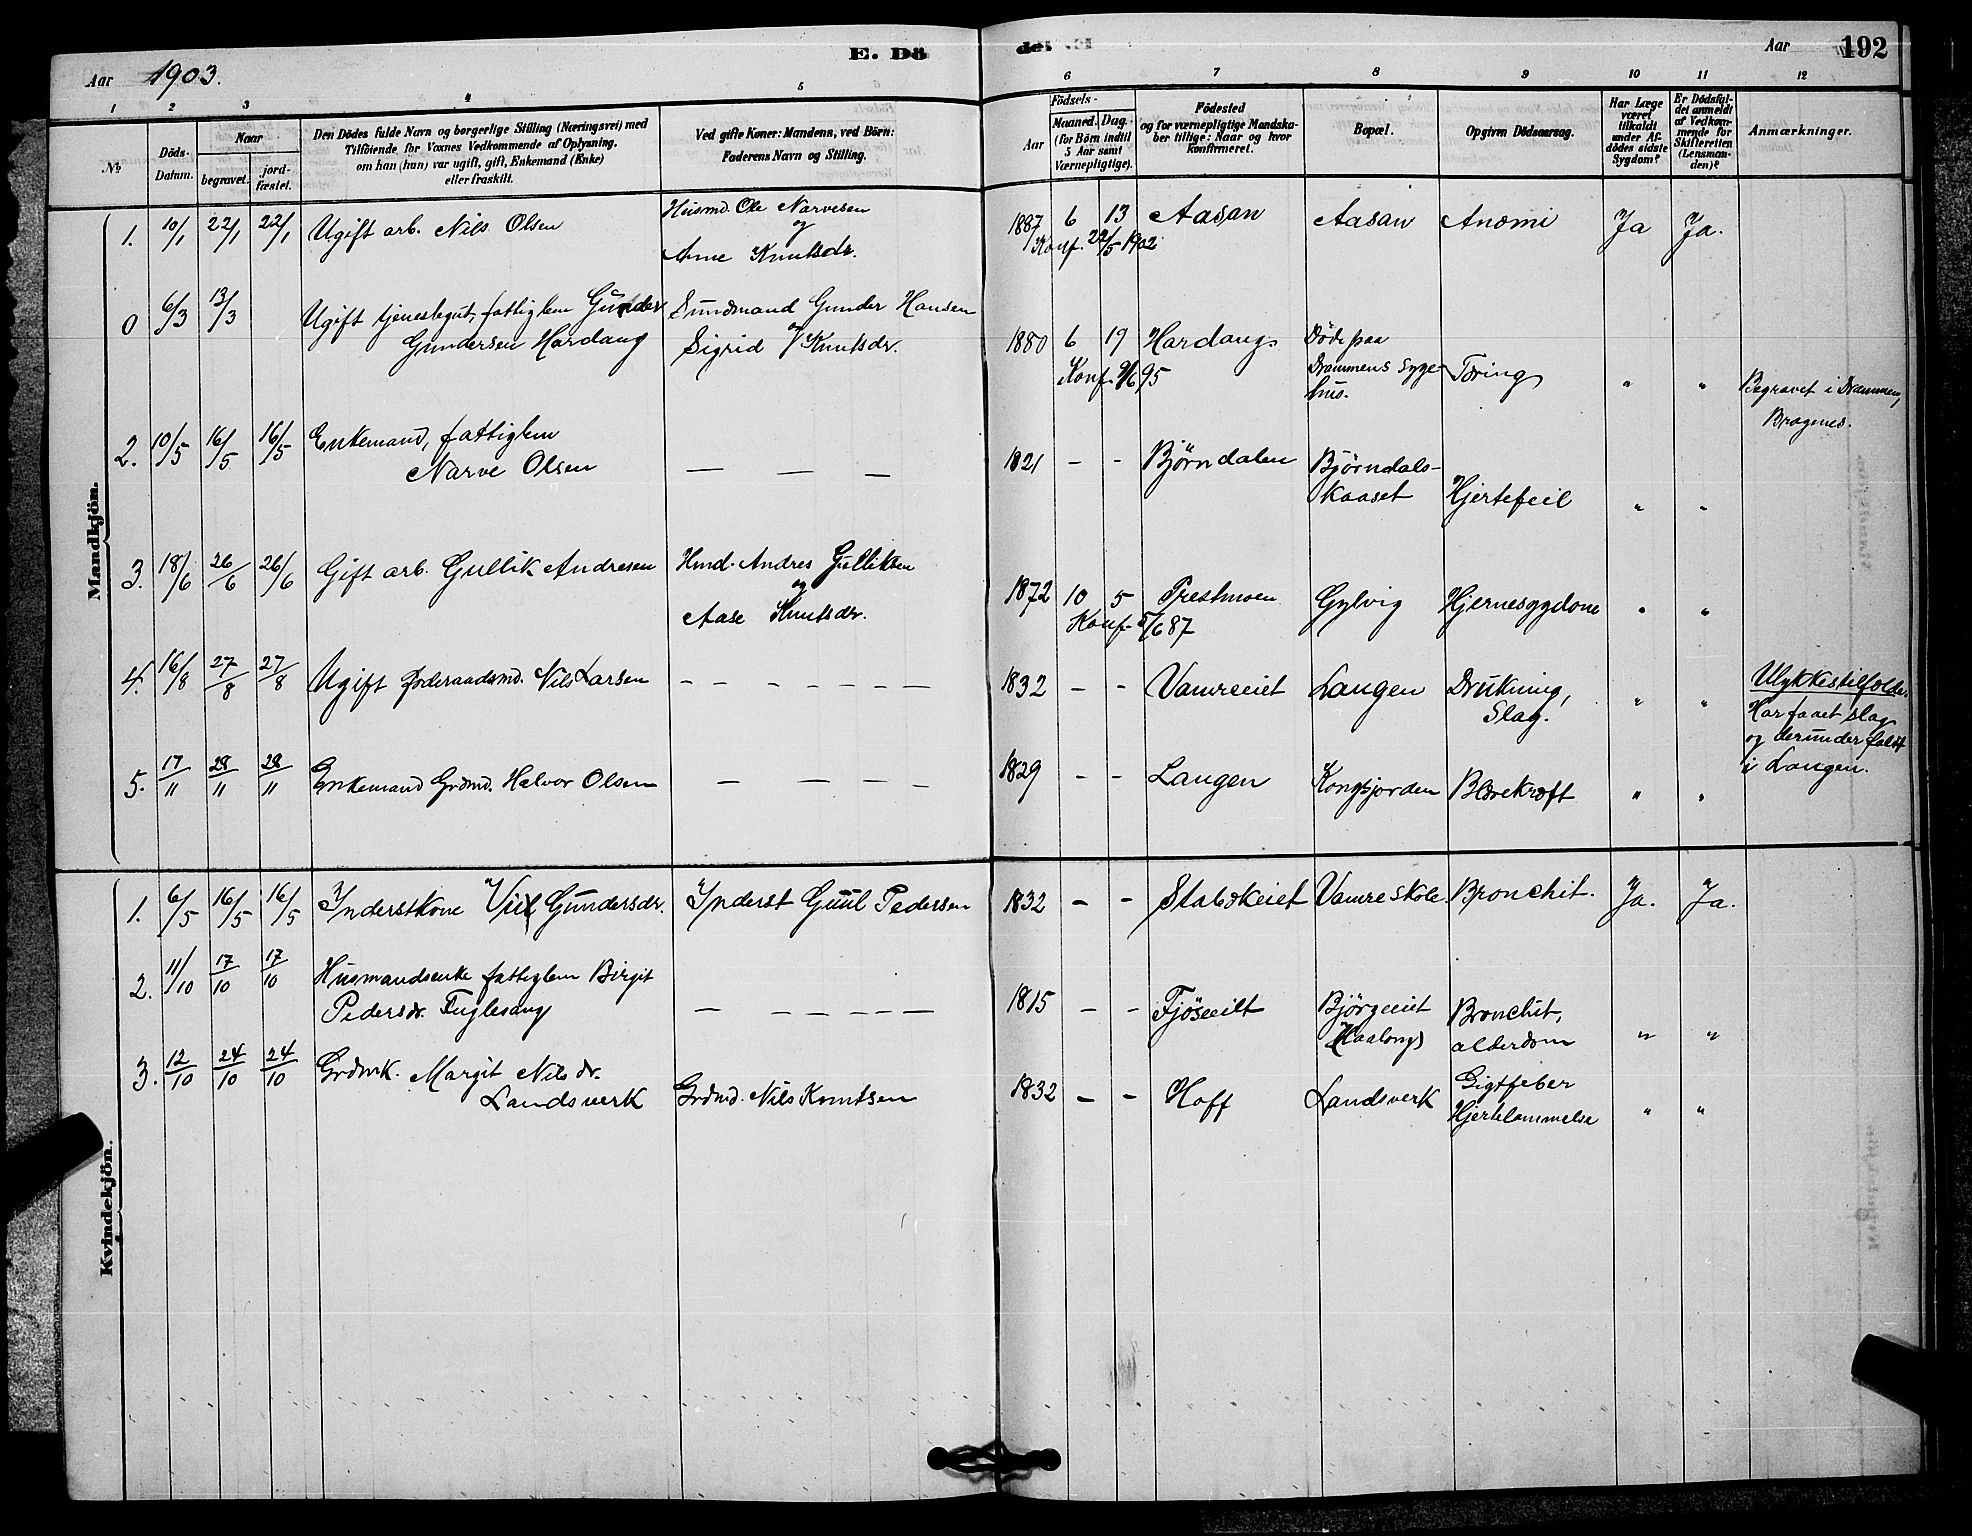 E. Dö
Aar 1903.
Aar 192
1 2 3 4 5
6 7 8 9 10 11 12
No
Döds-
Datum.
Naar
begravet.
jord-
fæstet.
Den Dödes fulde Navn og borgerlige Stilling (Næringsvei) med
Tilföiende, for Voxnes Vedkommende af Oplysning,
om han (hun) var ugift, gift, Enkemand (Enke)
eller fraskilt.
Ved gifte Koner: Mandens, ved Börn:
Faderens Navn og Stilling.
Födsels-
Aar
Maaned.
Dag.
(for Börn indtil
5 Aar samt
Værnepligtige).
Födested
og for værnepligtige Mandska-
ber tillige: Naar og hvor
konfirmeret.
Bopæl.
Opgiven Dödsaarsag.
Har Læge
været
tilkaldt
under Af-
dödes sidste
Sygdom?
Er Dödsfal-
det anmeldt
af Vedkom-
mende for
Skifteretten
(Lensman-
den)?
Anmærkninger.
Mandkjön.
1. 10/1 22/1 22/1 Ugift arb. Nils Olsen
Husmd. Ole Narvesen
og
Anne Knutsdr.
1887 6 13 Aasan Aasan Anomi Ja Ja.
Konf. 22/5 1902
0 6/3 13/3 Ugift tjenestegut, fattiglem Gunder
Gundersen Hardang
Sundmand Gunder Hansen
og
Sigrid Knutsdr.
1880 6 19 Hardangs Döde paa
Drammens Syge-
hus.
Konf. 9/6 95
Tæring " "
Begravet i Drammen,
Bragnes.
2. 10/5 16/5 16/5 Enkemand, fattiglem
Narve Olsen
— — —
1821 - - Björndalen Björndals-
kaaset Hjertefeil " "
3. 18/6 26/6 26/6 Gift arb. Gullik Andresen
Hmd. Andres Gulliksen
og
Aase Knutsdr.
1872 10 5 Prestmoen Gylvig Hjernesygdom " "
Konf. 5/6 87
4. 16/8 27/8 27/8 Ugift föderaadsmd. Nils Larsen
- - - - - - -
1832 - - Vamreeiet Langen Drukning,
Slag. " "
Ulykkestilfælde.
Har faaet slag
og derunder faldt
i Laagen.
5. 17/11 28/11 28/11 Enkemand Grdmd. Halvor Olsen
— — —
1829 - - Langen Kongsjorden Blærekræft " "
Kvindekjön.
1. 6/5 16/5 16/5 Inderstkone Viel Gundersdr. Inderst Guul Pedersen
1832 - - Stabækeiet Vamre skole Bronchit. Ja. Ja.
2. 11/10 17/10 17/10 Husmandsenke fattiglem Birgit
Pedersdr. Fuglesang
— — — — —
1815 - - Fjöseeiet Björgeeiet
(Haalong) Bronchit,
alderdom " "
3. 12/10 24/10 24/10 Grdmk. Margit Nilsdr.
Landsverk Grdmd. Nils Knutsen
1832 - - Hoff Landsverk Gigtfeber
Hjertelammelse " "